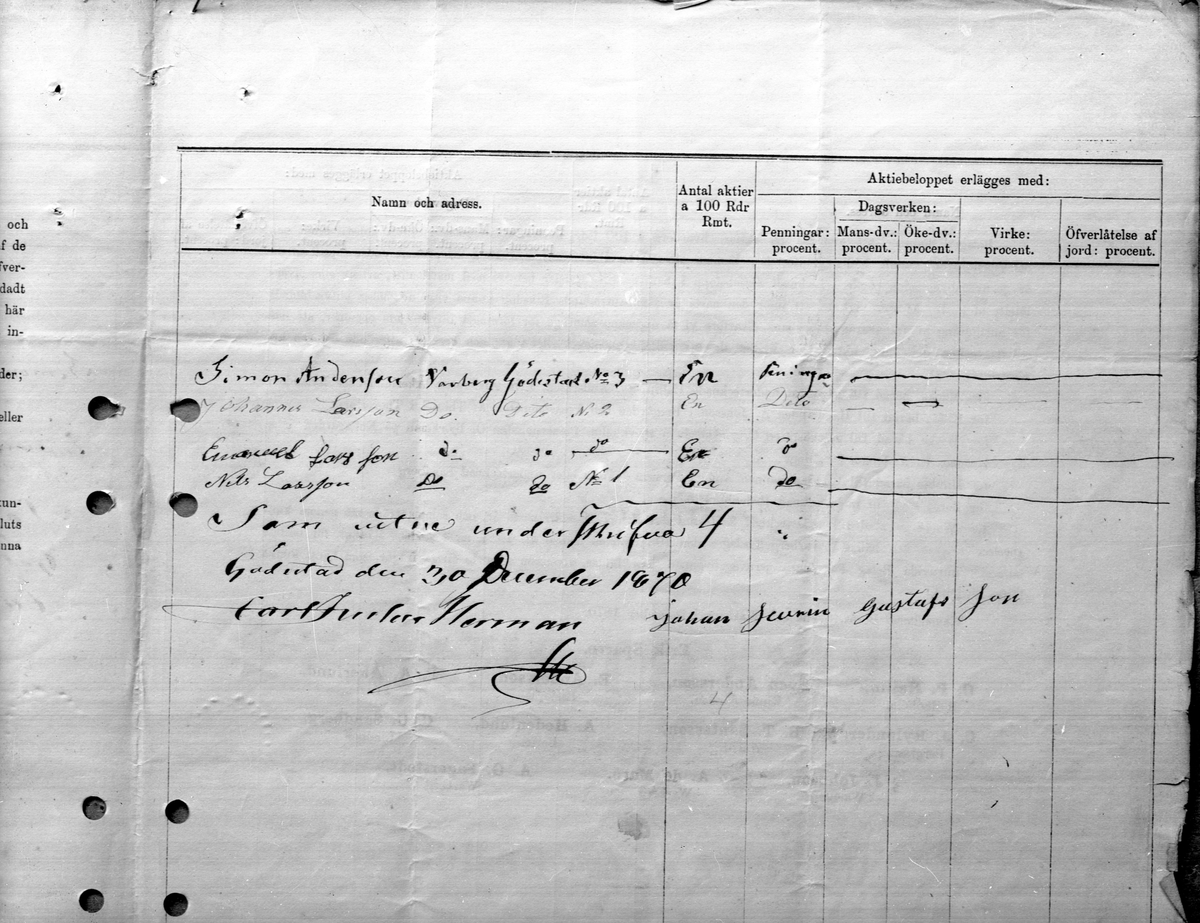 och
f de
fver-
dadt
här
in-
der;
eller
kun-
luts
nna
Aktiebeloppet erlägges med:
Namn och adress.
Antal aktier
a 100 Rdr
Rmt.
Dagsverken:
Penningar:
procent.
Mans-dv.:
procent.
Öke-dv.:
procent.
Virke:
procent.
Öfverlåtelse af
jord: procent.
Simon Andersson Varberg Gödestad No 3 — En Peningar
Johannes Larsson Do. Dito No 2 En Dito
Emanuel Larsson do do do En do
Nils Larsson Do do No 1 En do
Som utne underskrifva 4
Gödestad den 30 December 1870
Carl Gustav Herman Johan Severin Gustafs Son
4